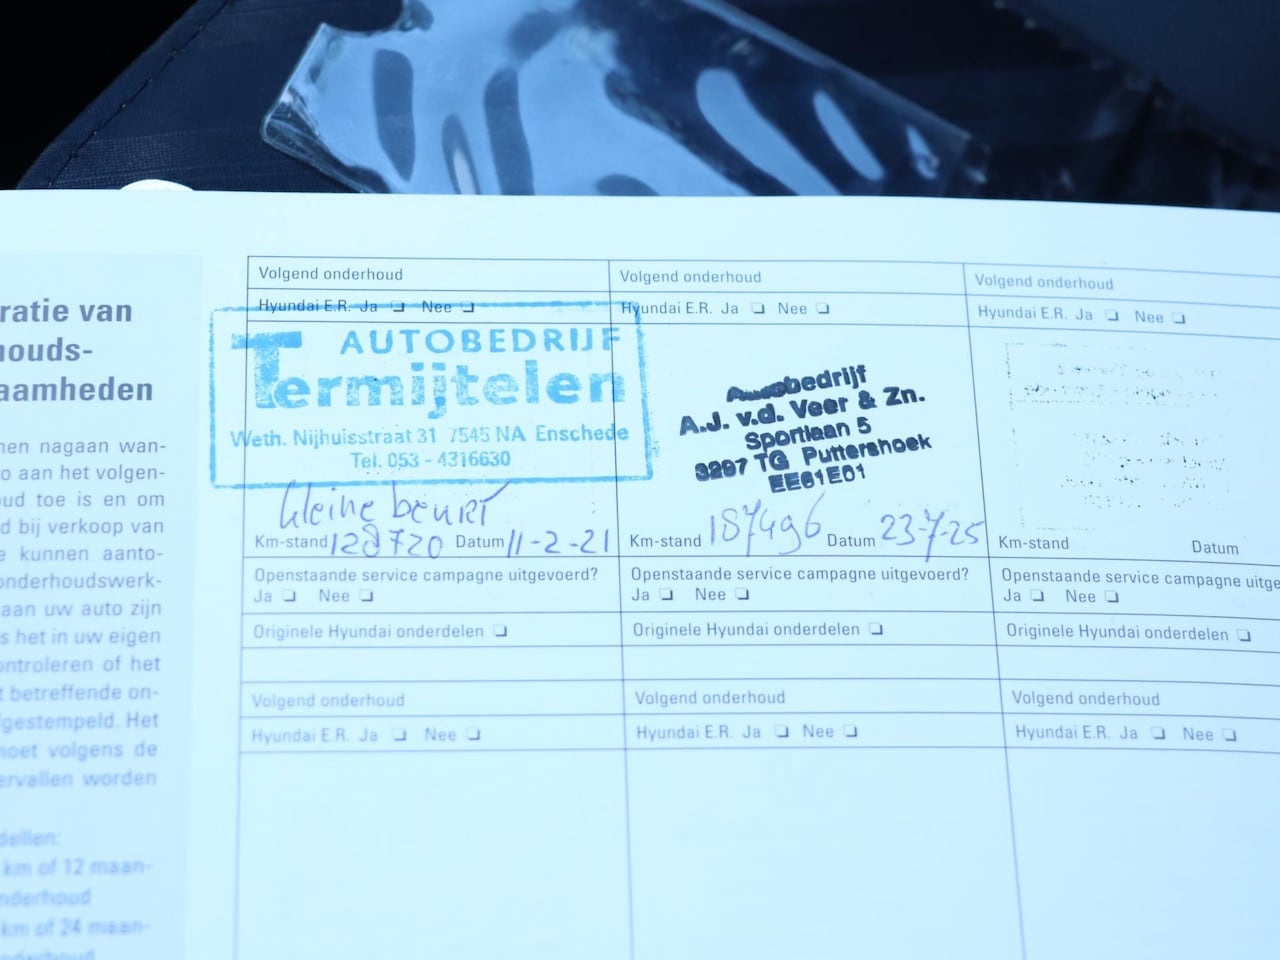 ratie van
houds-
aamheden
nen nagaan wan-
o aan het volgen-
ud toe is en om
d bij verkoop van
e kunnen aanto-
onderhoudswerk-
aan uw auto zijn
s het in uw eigen
ontroleren of het
t betreffende on-
gestempeld. Het
moet volgens de
ervallen worden
dellen:
km of 12 maan-
nderhoud
km of 24 maan-
Volgend onderhoud
Hyundai E.R. Ja ❏ Nee ❏
AUTOBEDRIJF
Termijtelen
Weth. Nijhuisstraat 31 7545 NA Enschede
Tel. 053 - 4316630
kleine beurt
Km-stand 128720 Datum 11-2-21
Openstaande service campagne uitgevoerd?
Ja ❏ Nee ❏
Originele Hyundai onderdelen ❏
Volgend onderhoud
Hyundai E.R. Ja ❏ Nee ❏
Volgend onderhoud
Hyundai E.R. Ja ❏ Nee ❏
Autobedrijf
A.J. v.d. Veer & Zn.
Sportlaan 5
3297 TG Puttershoek
EE61E01
Km-stand 187496 Datum 23-7-25
Openstaande service campagne uitgevoerd?
Ja ❏ Nee ❏
Originele Hyundai onderdelen ❏
Volgend onderhoud
Hyundai E.R. Ja ❏ Nee ❏
Volgend onderhoud
Hyundai E.R. Ja ❏ Nee ❏
Km-stand Datum
Openstaande service campagne uitge
Ja ❏ Nee ❏
Originele Hyundai onderdelen ❏
Volgend onderhoud
Hyundai E.R. Ja ❏ Nee ❏